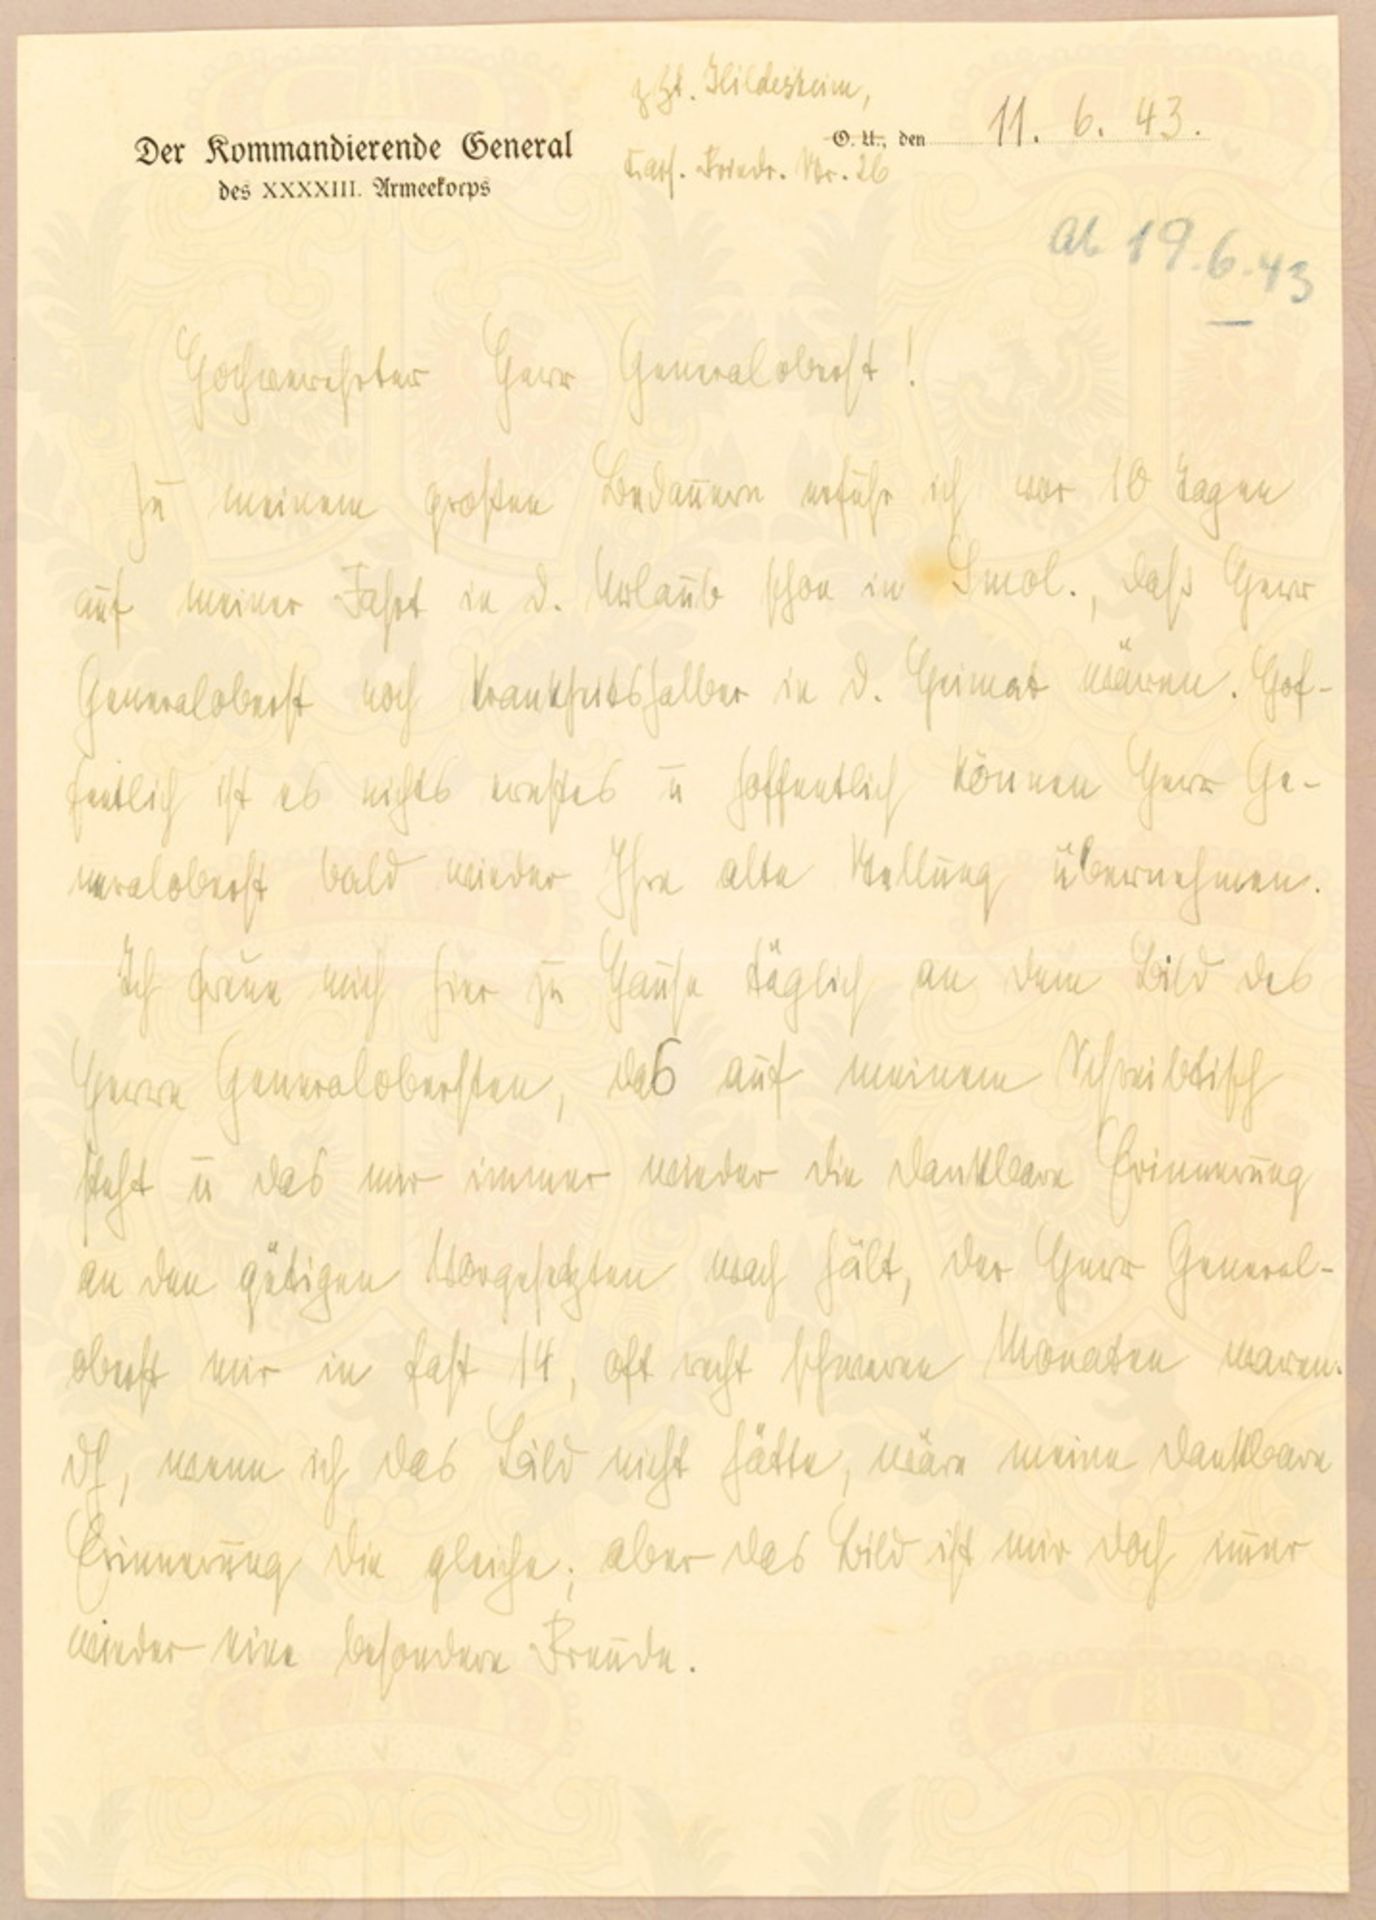 z. Zt. Hildesheim,
Der Kommandierende General
des XXXXIII. Armeekorps
O. U., den 11. 6. 43.
Friedr. Str. 26
ab 19.6.43
Hochverehrter Herr Generaloberst!
Zu meinem großen Bedauern erfuhr ich vor 10 Tagen
auf meiner Fahrt in d. Urlaub schon in Smol., daß Herr
Generaloberst noch krankheitshalber in d. Heimat wären. Hof-
fentlich ist es nichts ernstes u hoffentlich können Herr Ge-
neraloberst bald wieder Ihre alte Stellung übernehmen.
Ich freue mich hier zu Hause täglich an dem Bild des
Herrn Generalobersten, das auf meinem Schreibtisch
steht u das mir immer wieder die dankbare Erinnerung
an den gütigen Vorgesetzten wach hält, der Herr General-
oberst mir in fast 14, oft recht schweren Monaten waren.
wenn ich das Bild nicht hätte, wäre meine dankbare
Erinnerung die gleiche; aber das Bild ist mir doch immer
wieder eine besondere Freude.